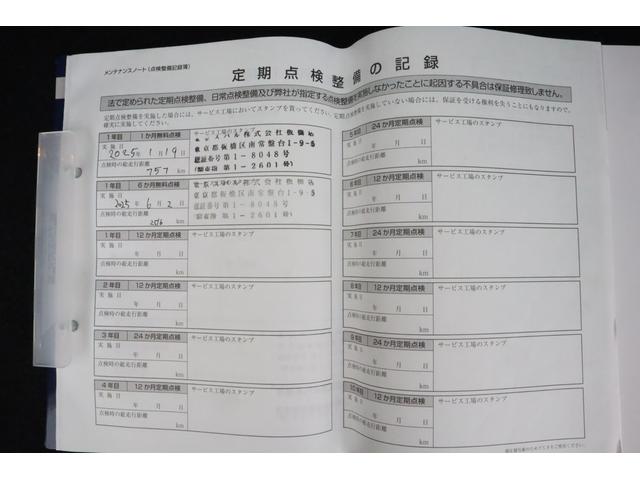 メンテナンスノート（点検整備記録簿）
定期点検整備の記録
法で定められた定期点検整備、日常点検整備及び弊社が指定する点検整備を実施しなかったことに起因する不具合は保証修理致しません。
定期点検整備を実施した場合には、サービス工場においてスタンプを貰ってください。
確実に実施してください。
実施していない場合には、保証を受ける権利を失うこともありますので、
1年目 1か月無料点検
サービス工場のスタンプ
実施日
2025年 1月 19日
点検時の総走行距離
757 km
株式会社
東京都板橋区南常盤台1-9-5
認証番号第1-8048号
第1-2601号
1年目 6か月無料点検
サービス工場のスタンプ
実施日
2025年 6月 2日
点検時の総走行距離
km
東京都板橋区南常盤台1-9-5
認証番号第1-8048号
第1-2601号
1年目 12か月定期点検
サービス工場のスタンプ
実施日
年 月 日
点検時の総走行距離
km
2年目 12か月定期点検
サービス工場のスタンプ
実施日
年 月 日
点検時の総走行距離
km
3年目 24か月定期点検
サービス工場のスタンプ
実施日
年 月 日
点検時の総走行距離
km
4年目 12か月定期点検
サービス工場のスタンプ
実施日
年 月 日
点検時の総走行距離
km
5年目 24か月定期点検
サービス工場のスタンプ
実施日
年 月 日
点検時の総走行距離
km
6年目 12か月定期点検
サービス工場のスタンプ
実施日
年 月 日
点検時の総走行距離
km
7年目 24か月定期点検
サービス工場のスタンプ
実施日
年 月 日
点検時の総走行距離
km
8年目 12か月定期点検
サービス工場のスタンプ
実施日
年 月 日
点検時の総走行距離
km
9年目 24か月定期点検
サービス工場のスタンプ
実施日
年 月 日
点検時の総走行距離
km
10年目 12か月定期点検
サービス工場のスタンプ
実施日
年 月 日
点検時の総走行距離
km